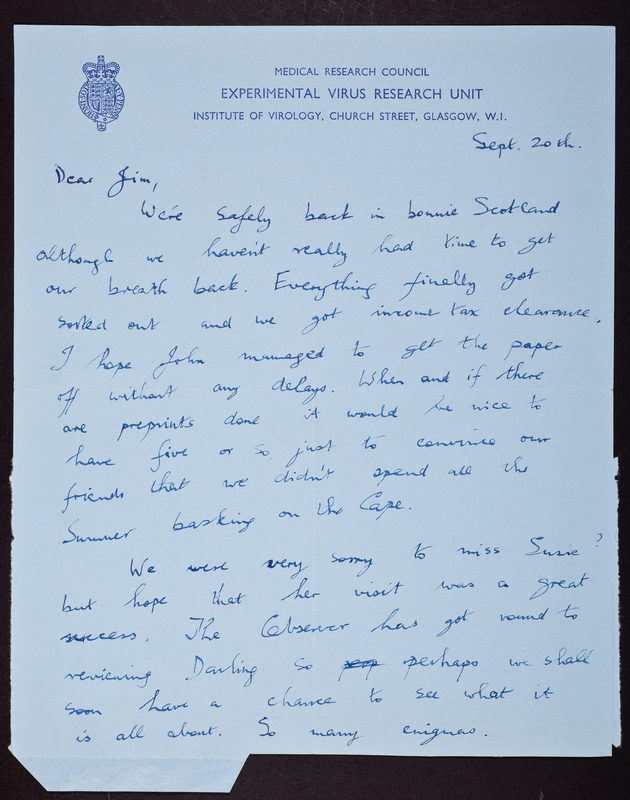 MEDICAL RESEARCH COUNCIL
EXPERIMENTAL VIRUS RESEARCH UNIT
INSTITUTE OF VIROLOGY, CHURCH STREET, GLASGOW, W.I.
Sept. 20th.
Dear Jim,
We're safely back in bonnie Scotland
although we haven't really had time to get
our breath back. Everything finally got
sorted out and we got income tax clearance.
I hope John managed to get the paper
off without any delays. When and if there
are preprints done it would be nice to
have five or so just to convince our
friends that we didn't spend all the
Summer basking on the Cape.
We were very sorry to miss Susie?
but hope that her visit was a great
success. The Observer has got round to
reviewing Darling so perhaps we shall
soon have a chance to see what it
is all about. So many enigmas.